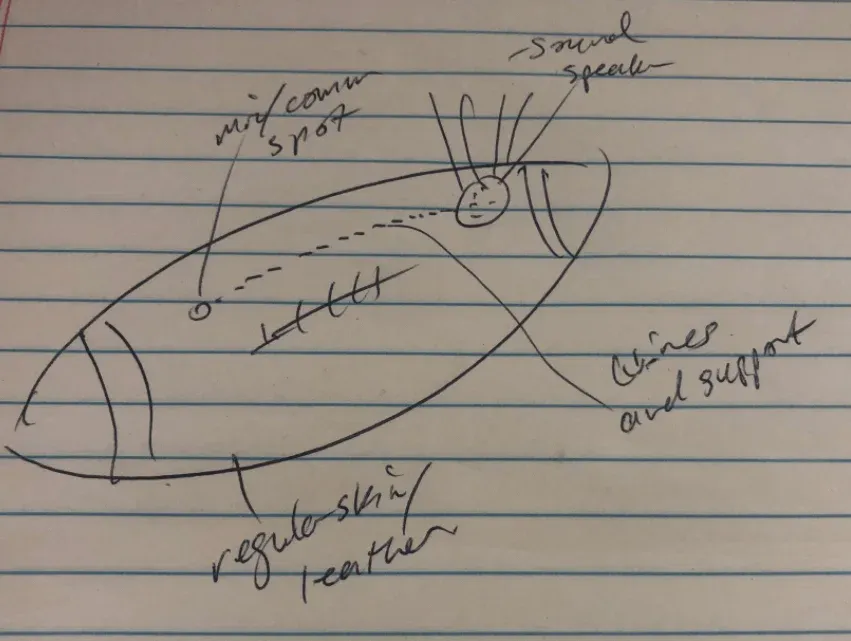 - sound
speaker
mic/comm
spot
wires
and support
regular skin/
leather